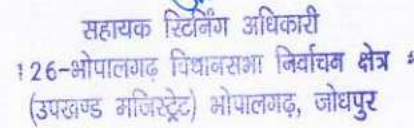 सहायक रिटर्निंग अधिकारी
126-भोपालगढ़ विधानसभा निर्वाचन क्षेत्र
(उपखण्ड मजिस्ट्रेट) भोपालगढ़, जोधपुर